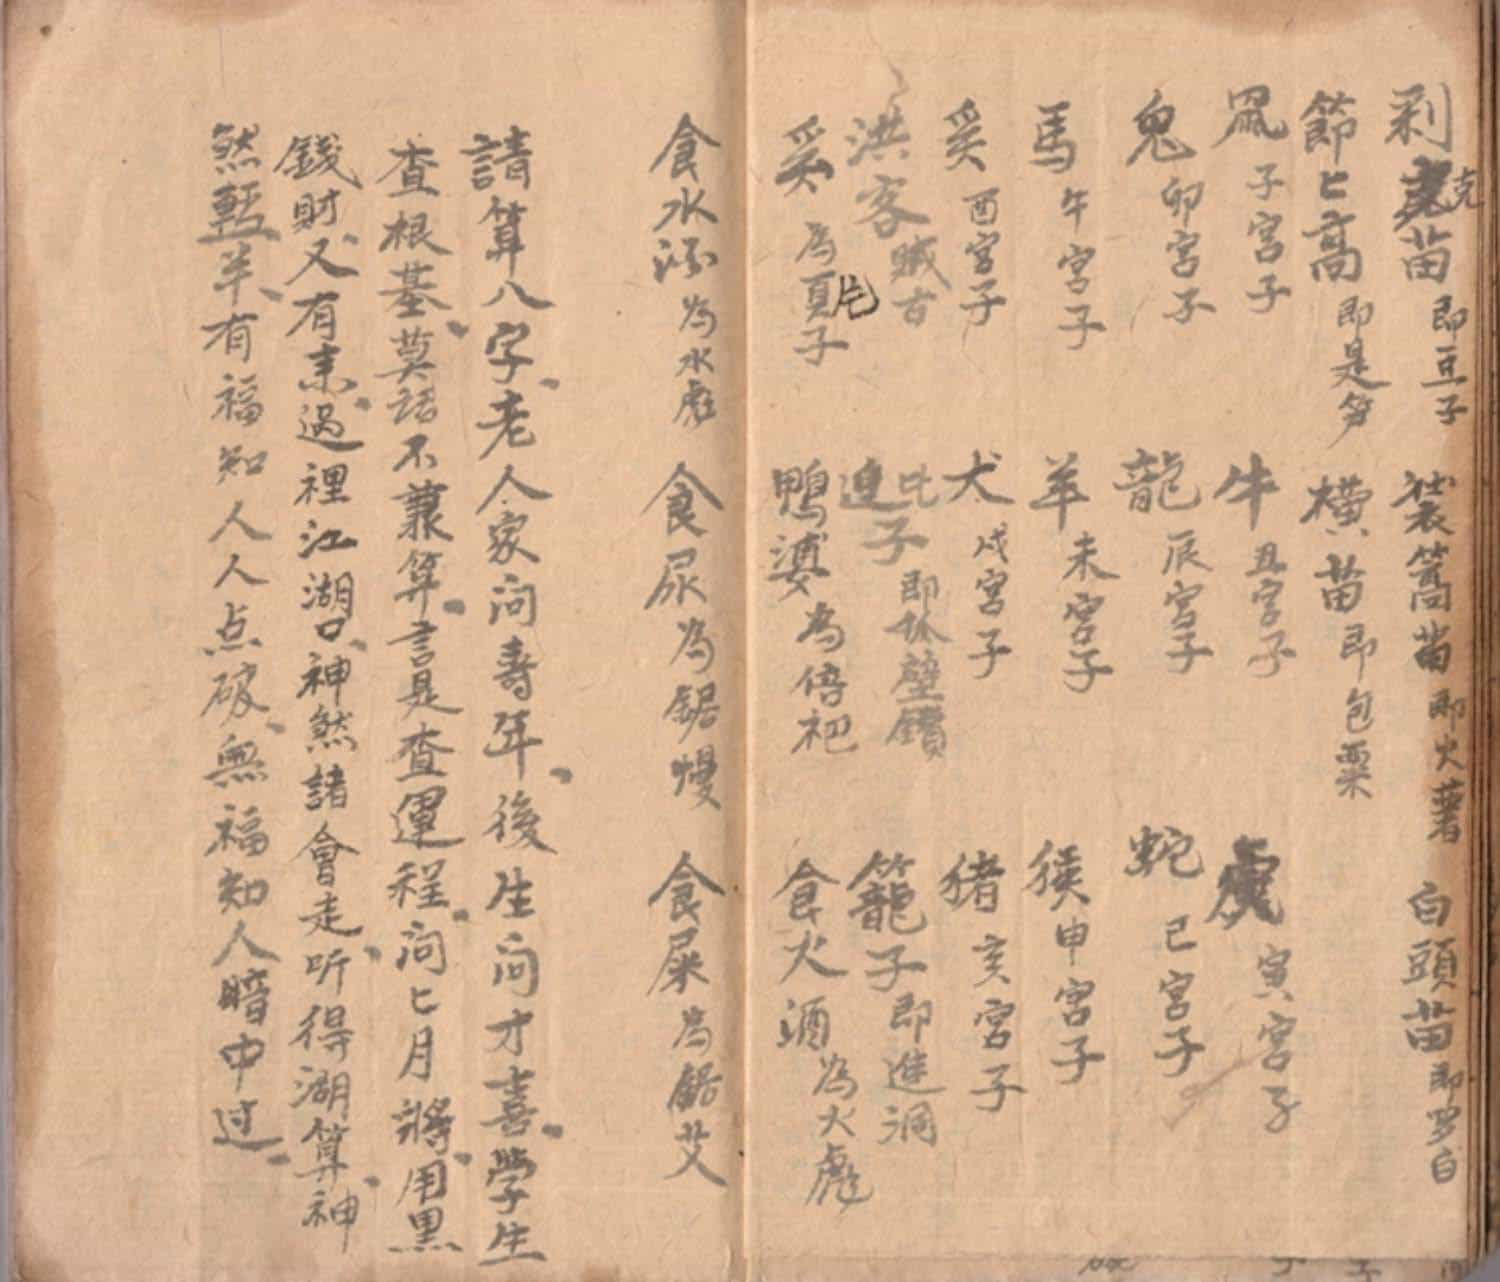 剥克苗 即豆子 装篙苗 即火薯 白頭苗 即罗白
節匕高 即是笋 横苗 即包粟
鼠 子宮子 牛 丑宮子 虎 寅宮子
兔 卯宮子 龍 辰宮子 蛇 巳宮子
馬 午宮子 羊 未宮子 猴 申宮子
奚 酉宮子 犬 戍宮子 猪 亥宮子
洪客 賊古 子 即 壁鑽 籠子 即進洞
奚 為頁子 鴨婆 為 食火酒 為火彪
食水 為水彪 食尿 為鋸熳 食屎 為鋸艾
請算八字老人家问壽年後生问才喜學生
查根基莫話不兼算言是查運程问匕月將用黑
錢財又有素過裡江湖口神然諸會走听得湖算神
然輊羊有福知人人点破無福知人暗中过